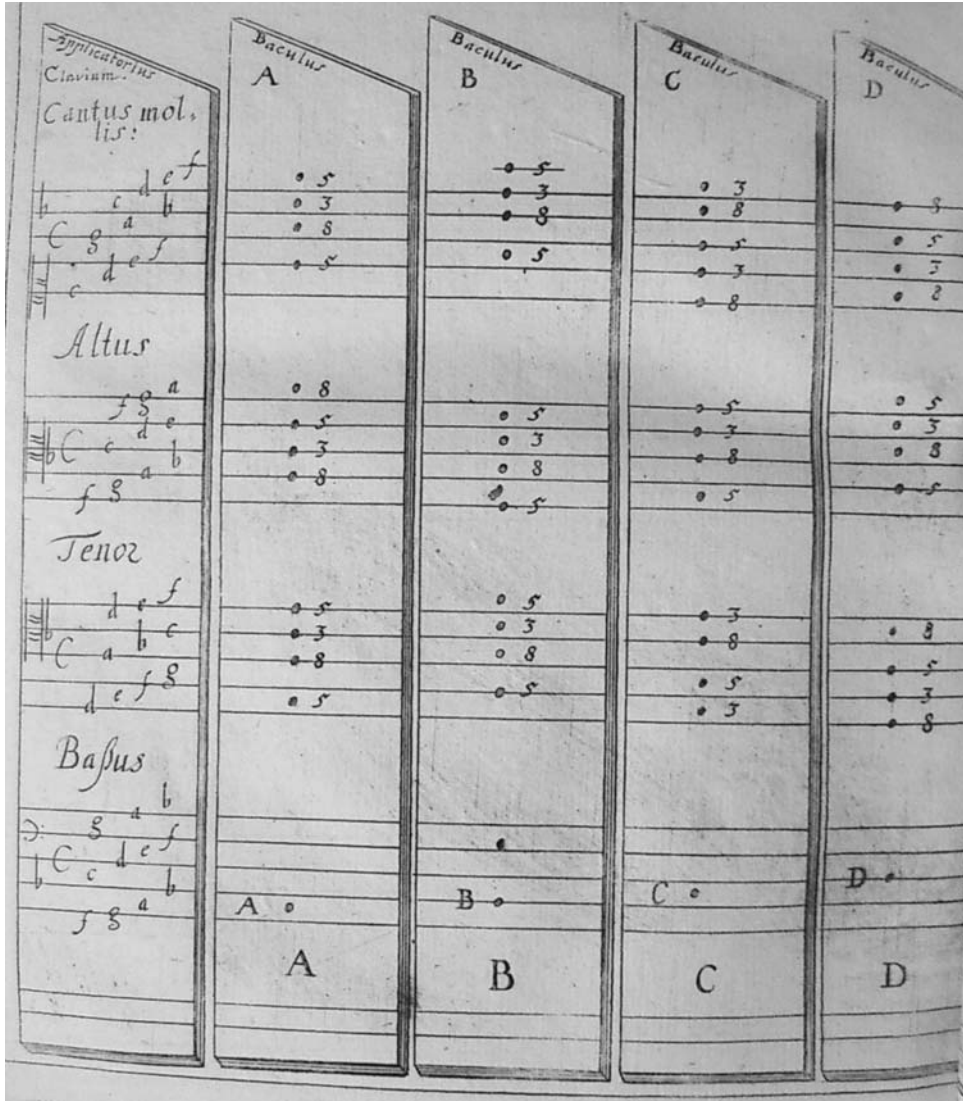 Applicatorius
Clavium.
Cantus mol,
lis:
d e f
b c b
C g a
d e f
c
Altus
f g a
d e
C c b
a
f g
Tenor
d e f
b c
C a b
f g
d e
Baßus
a b
g f
C d e
b c b
f g a
Baculus
A
5
3
8
5
8
5
3
8
5
3
8
5
A
A
Baculus
B
5
3
8
5
5
3
8
5
5
3
8
5
B
B
Baculus
C
3
8
5
3
8
5
3
8
5
3
8
5
3
C
C
Baculus
D
8
5
3
8
5
3
8
5
8
5
3
8
D
D